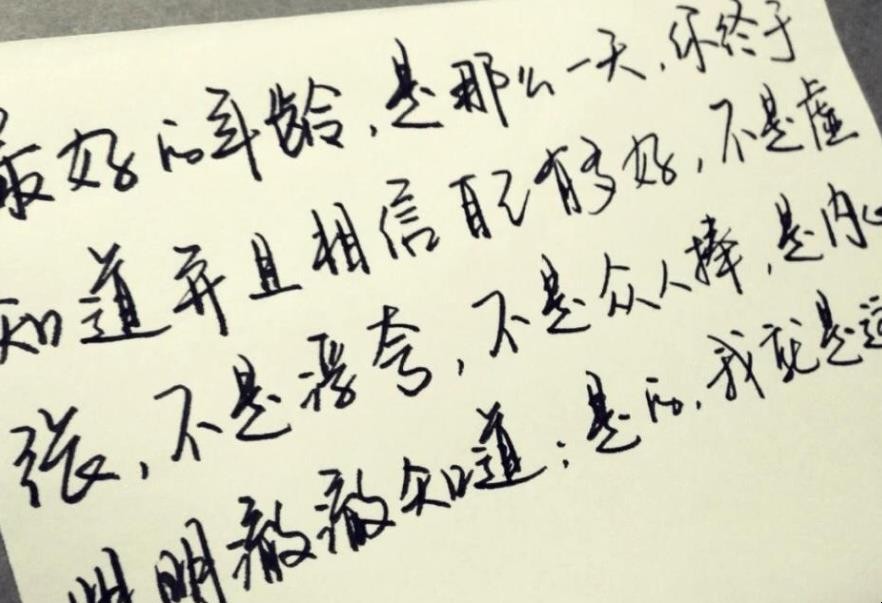 最好的年龄，是那么一天，你终于
知道并且相信自己有多好，不是虚
张，不是浮夸，不是众人捧，是内心
明明澈澈知道：是的，我就是这